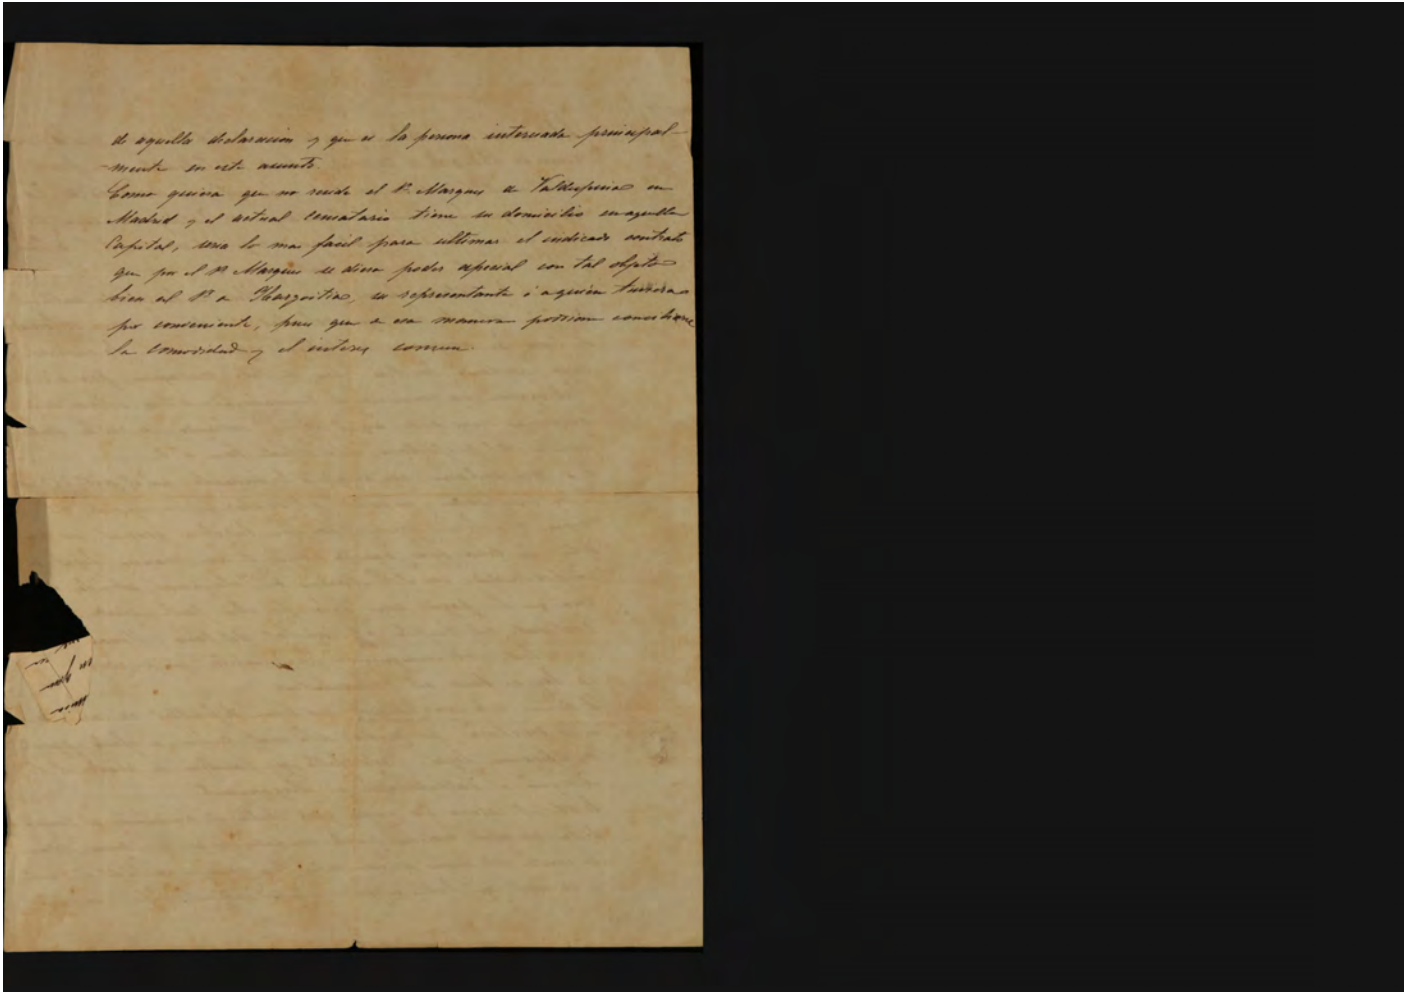 de aquella declaracion y que es la persona interesada principal-
mente en este asunto.
Como quiera que no reside el Sr. Marques de Valdespina en
Madrid y el actual censatario tiene su domicilio en aquella
Capital, sera lo mas facil para ultimar el indicado contrato
que por el Sr. Marques se diera poder especial con tal objeto
bien al Sr. de Ibargoitia, su representante ó a quien tuviera
por conveniente, pues que de esa manera podrian conciliarse
la comodidad y el interes comun.